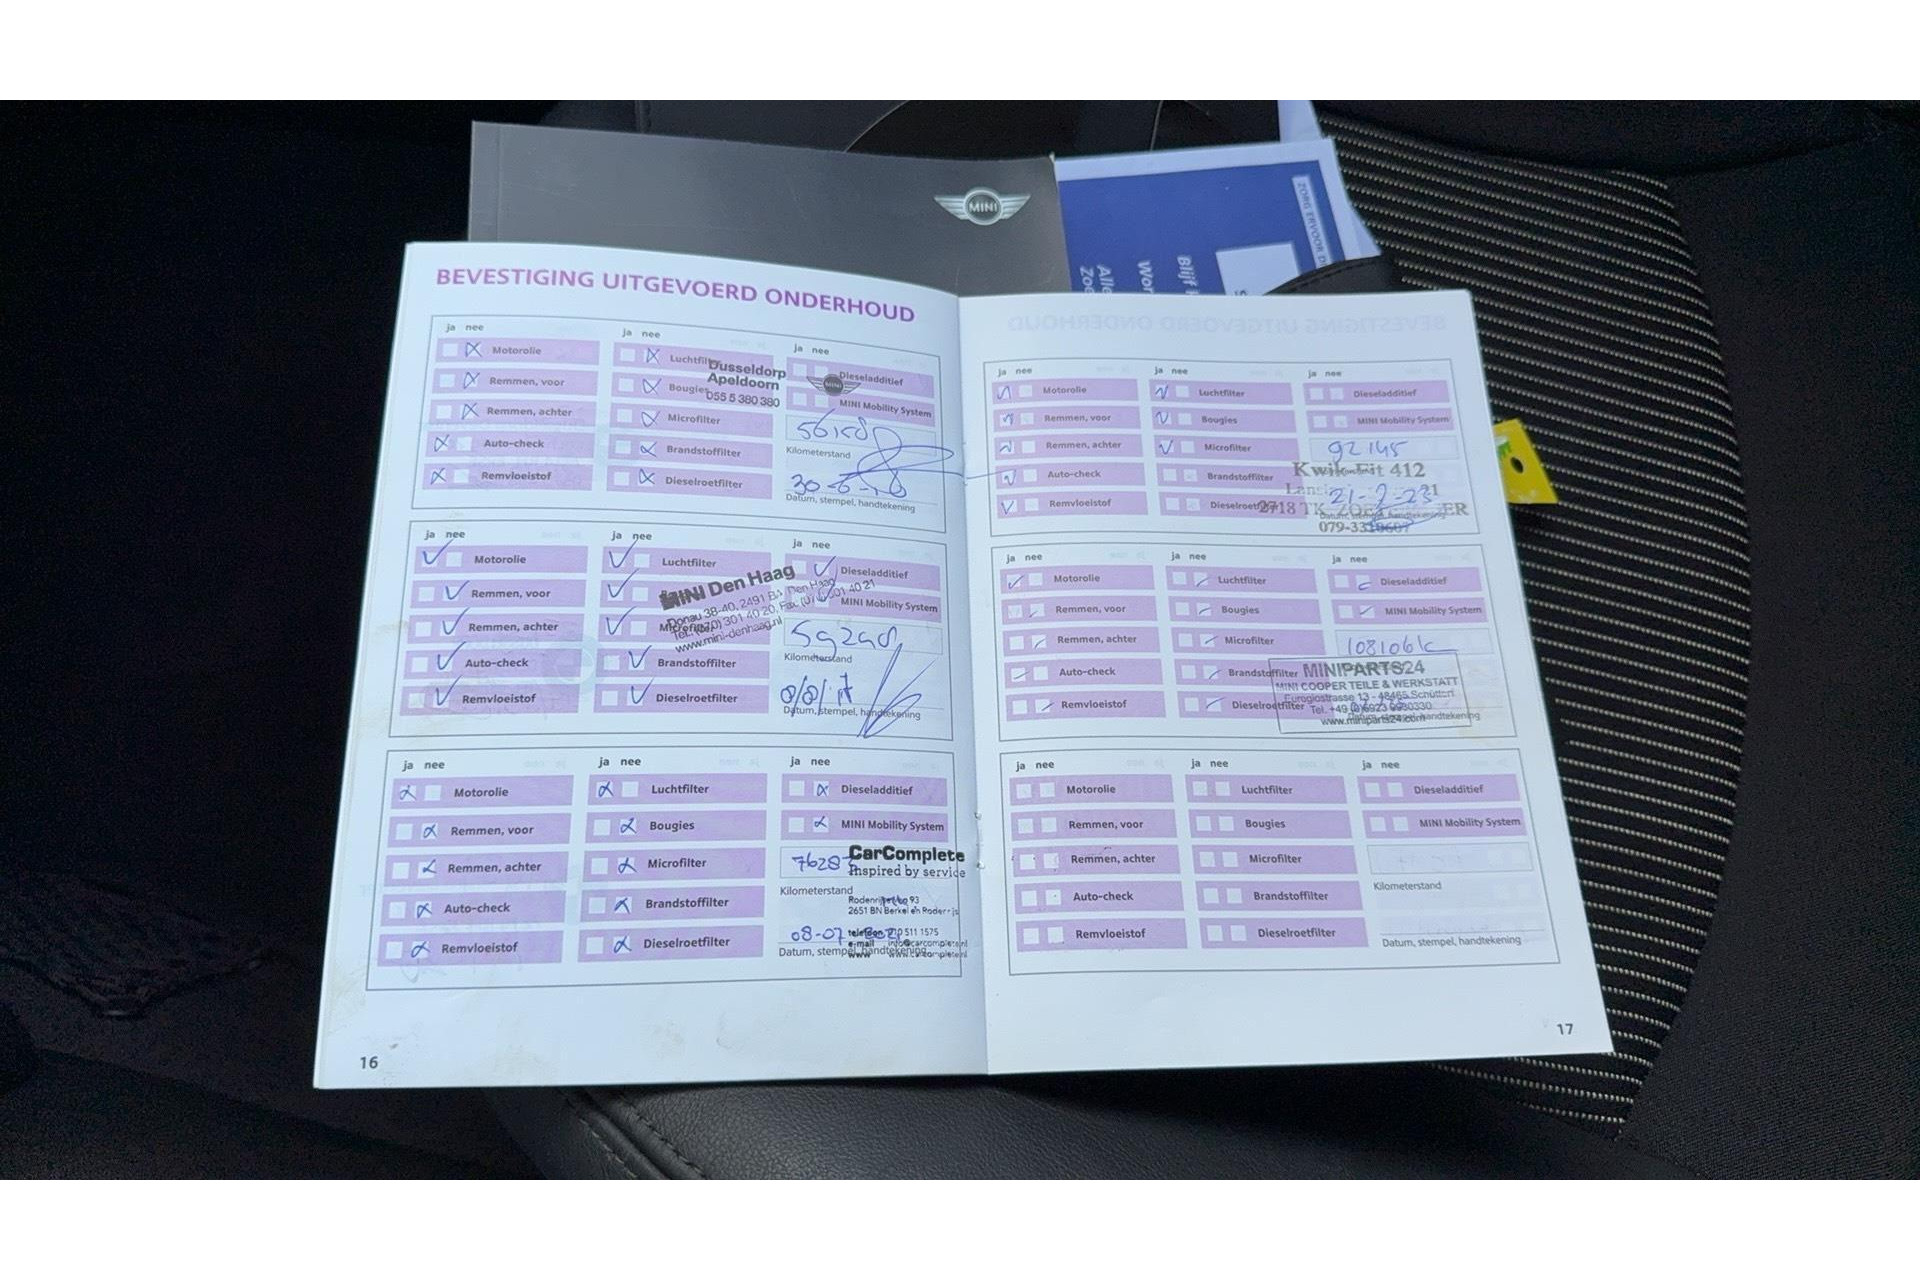 MINI
ZORG ERVOOR D
Blijf
Wor
Alle
Zoe
BEVESTIGING UITGEVOERD ONDERHOUD
ja nee
Motorolie
Remmen, voor
Remmen, achter
Auto-check
Remvloeistof
ja nee
Luchtfilter
Bougies
Microfilter
Brandstoffilter
Dieselroetfilter
ja nee
Dieseladditief
MINI Mobility System
Dusseldorp
Apeldoorn
055 5 380 380
MINI
Kilometerstand
Datum, stempel, handtekening
ja nee
Motorolie
Remmen, voor
Remmen, achter
Auto-check
Remvloeistof
ja nee
Luchtfilter
Microfilter
Brandstoffilter
Dieselroetfilter
ja nee
Dieseladditief
MINI Mobility System
MINI Den Haag
Donau 38-40, 2491 BA Den Haag
Tel. (070) 301 40 20, Fax (070) 301 40 21
www.mini-denhaag.nl
Kilometerstand
8/8/17
Datum, stempel, handtekening
ja nee
Motorolie
Remmen, voor
Remmen, achter
Auto-check
Remvloeistof
ja nee
Luchtfilter
Bougies
Microfilter
Brandstoffilter
Dieselroetfilter
ja nee
Dieseladditief
MINI Mobility System
CarComplete
Inspired by service
Kilometerstand
93
2651 BN Berkel en Rodenrijs
telefoon 010 511 1575
e-mail info@carcomplete.nl
www www.carcomplete.nl
08-07-2021
Datum, stempel, handtekening
16
ja nee
Motorolie
Remmen, voor
Remmen, achter
Auto-check
Remvloeistof
ja nee
Luchtfilter
Bougies
Microfilter
Brandstoffilter
Dieselroetfilter
ja nee
Dieseladditief
MINI Mobility System
92145
Kwik-Fit 412
21-7-23
2718 TK ZOETERMEER
Datum, stempel, handtekening
ja nee
Motorolie
Remmen, voor
Remmen, achter
Auto-check
Remvloeistof
ja nee
Luchtfilter
Bougies
Microfilter
Brandstoffilter
Dieselroetfilter
ja nee
Dieseladditief
MINI Mobility System
108106k
MINIPARTS24
MINI COOPER TEILE & WERKSTATT
Eurogiostrasse 13 - 48465 Schüttorf
Tel. +49 (0)5923 9930330
www.miniparts24.com
Datum, stempel, handtekening
ja nee
Motorolie
Remmen, voor
Remmen, achter
Auto-check
Remvloeistof
ja nee
Luchtfilter
Bougies
Microfilter
Brandstoffilter
Dieselroetfilter
ja nee
Dieseladditief
MINI Mobility System
Kilometerstand
Datum, stempel, handtekening
17